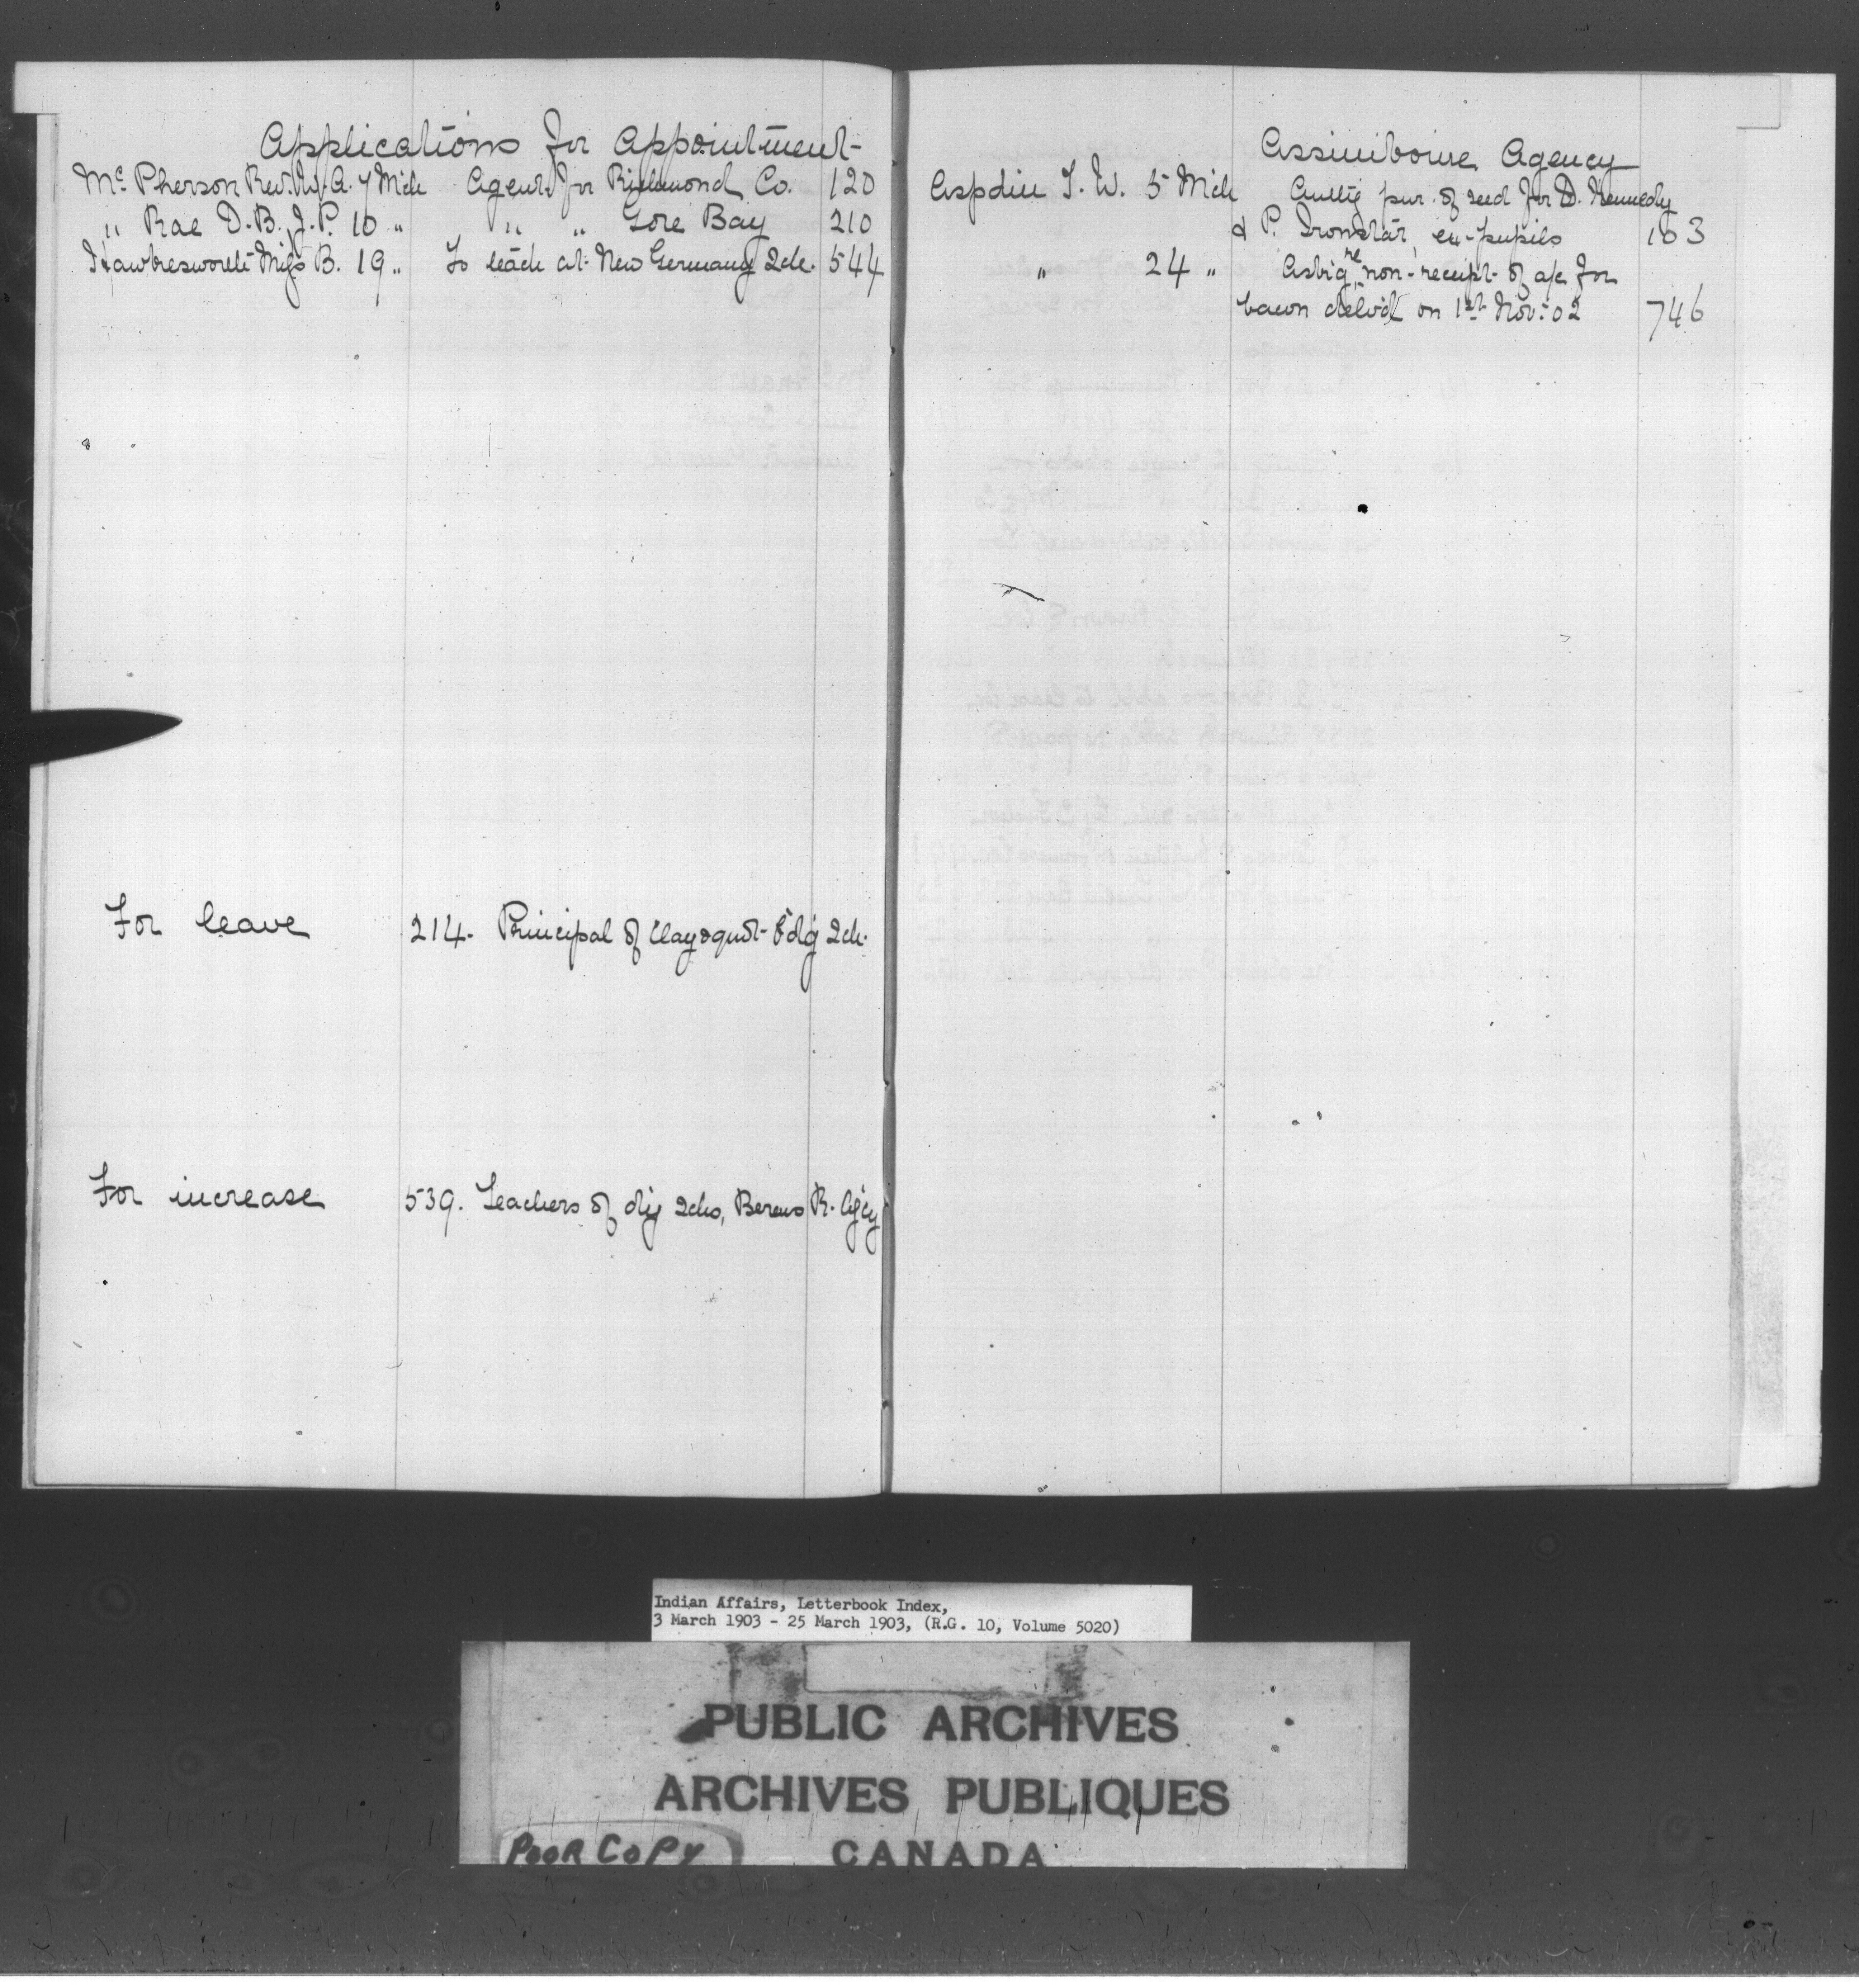 Applications for Appointment
McPherson Rev. W. A. 7 Mch Agent for Richmond Co. 120
" Rae D. B. J. P. 10 " " " Gore Bay 210
Hawkesworth Miss B. 19 " To teach at New Germany Sch. 544
For leave 214. Principal of Clayoquot Bd'g Sch.
For increase 539. Teachers of dy Schs, Berens R. Ag'cy
Assiniboine Agency
Aspdin T. W. 5 Mch Auth'g pur. of seed for D. Kennedy
& P. Ironstar, ex-pupils 163
" 24 " Ask'g re non-receipt of a/c for
bacon deliv'd on 1st Nov: 02 746
Indian Affairs, Letterbook Index,
3 March 1903 - 25 March 1903, (R.G. 10, Volume 5020)
PUBLIC ARCHIVES
ARCHIVES PUBLIQUES
CANADA
POOR COPY